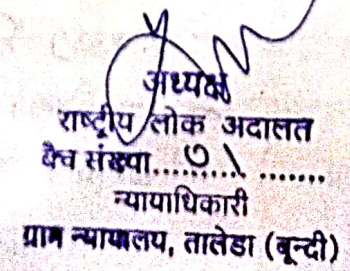 अध्यक्ष
राष्ट्रीय लोक अदालत
बैंच संख्या..... ७१ .......
न्यायाधिकारी
ग्राम न्यायालय, तालेडा (बून्दी)